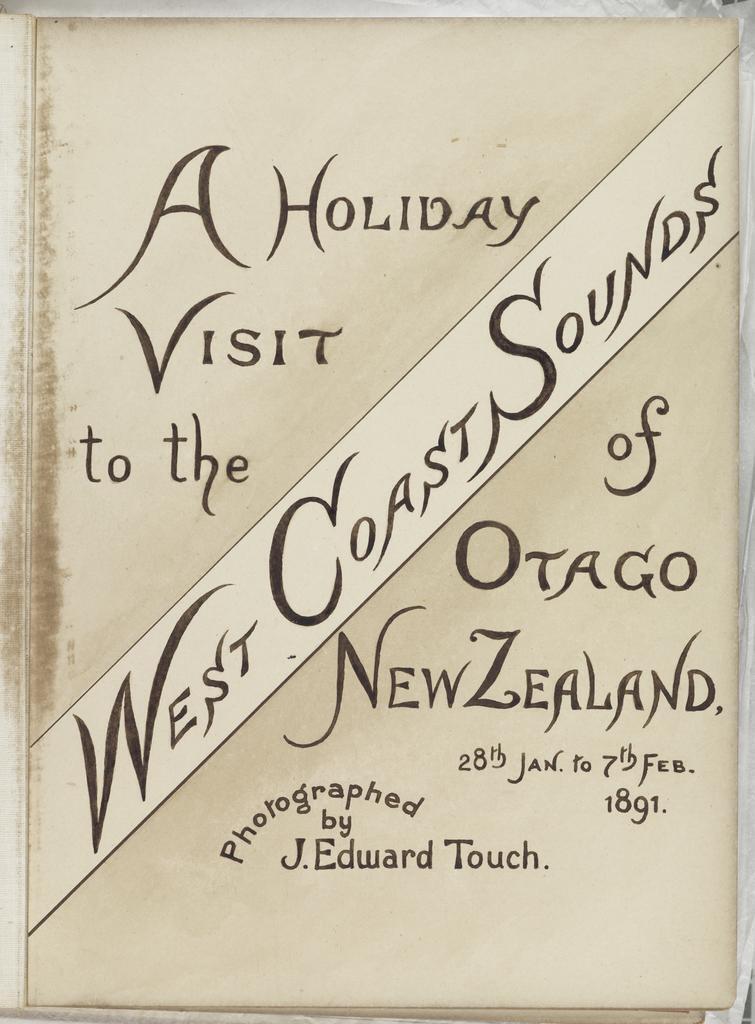 A HOLIDAY
VISIT
to the
WEST COAST SOUNDS
of
OTAGO
NEW ZEALAND,
28th JAN. to 7th FEB.
1891.
Photographed
by
J. Edward Touch.